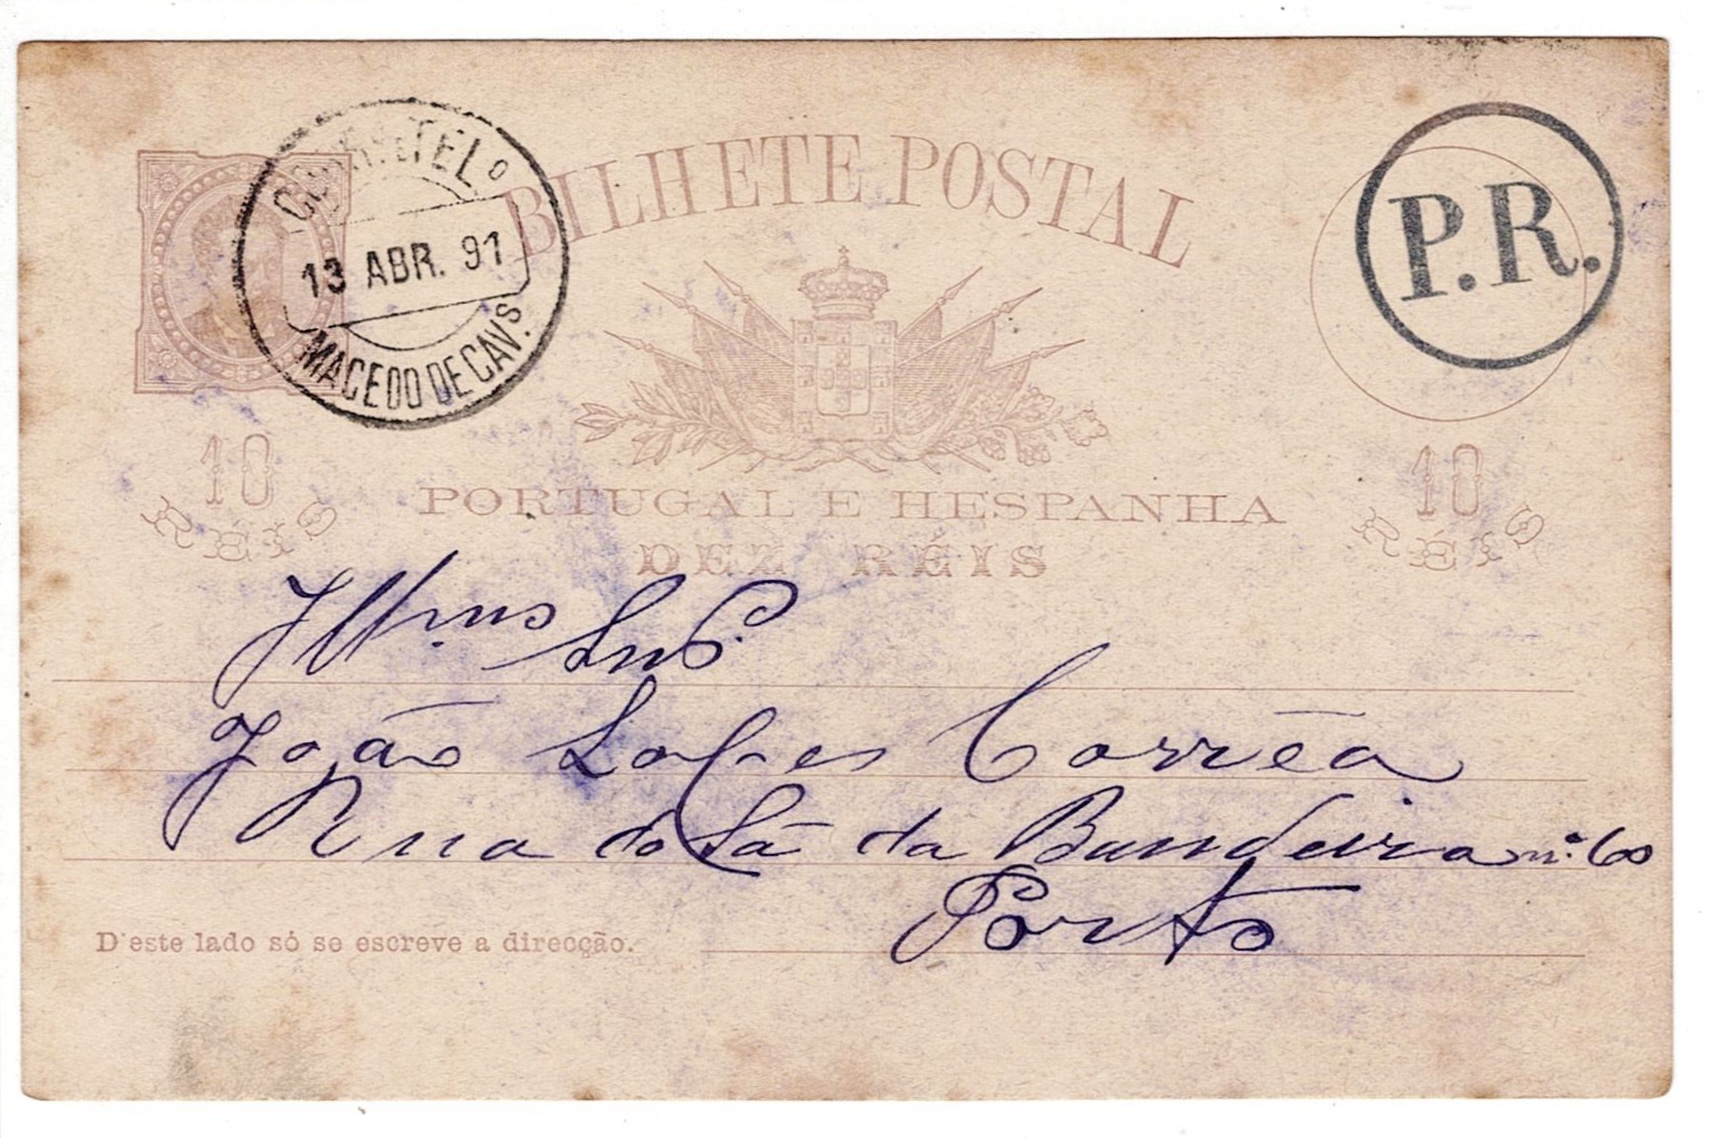 BILHETE POSTAL
CORR. E TELº
13 ABR. 91
MACEDO DE CAVˢ.
P.R.
10 RÉIS
10 RÉIS
PORTUGAL E HESPANHA
DEZ RÉIS
Illmo Snr.
João Lopes Corrêa
Rua do Sá da Bandeira nº 60
Porto
D'este lado só se escreve a direcção.